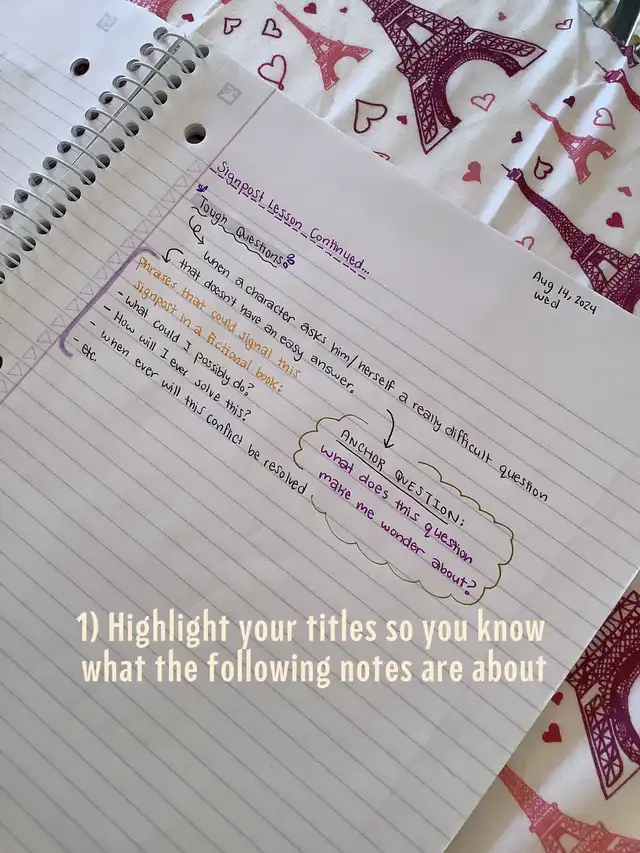 Signpost Lesson Continued...
Aug 14, 2024
Wed
Tough Questions:
When a character asks him/herself a really difficult question
that doesn't have an easy answer.
phrases that could signal this
signpost in a fictional book:
- what could I possibly do?
- How will I ever solve this?
- when ever will this conflict be resolved
- etc
ANCHOR QUESTION:
what does this question
make me wonder about?
1) Highlight your titles so you know
what the following notes are about